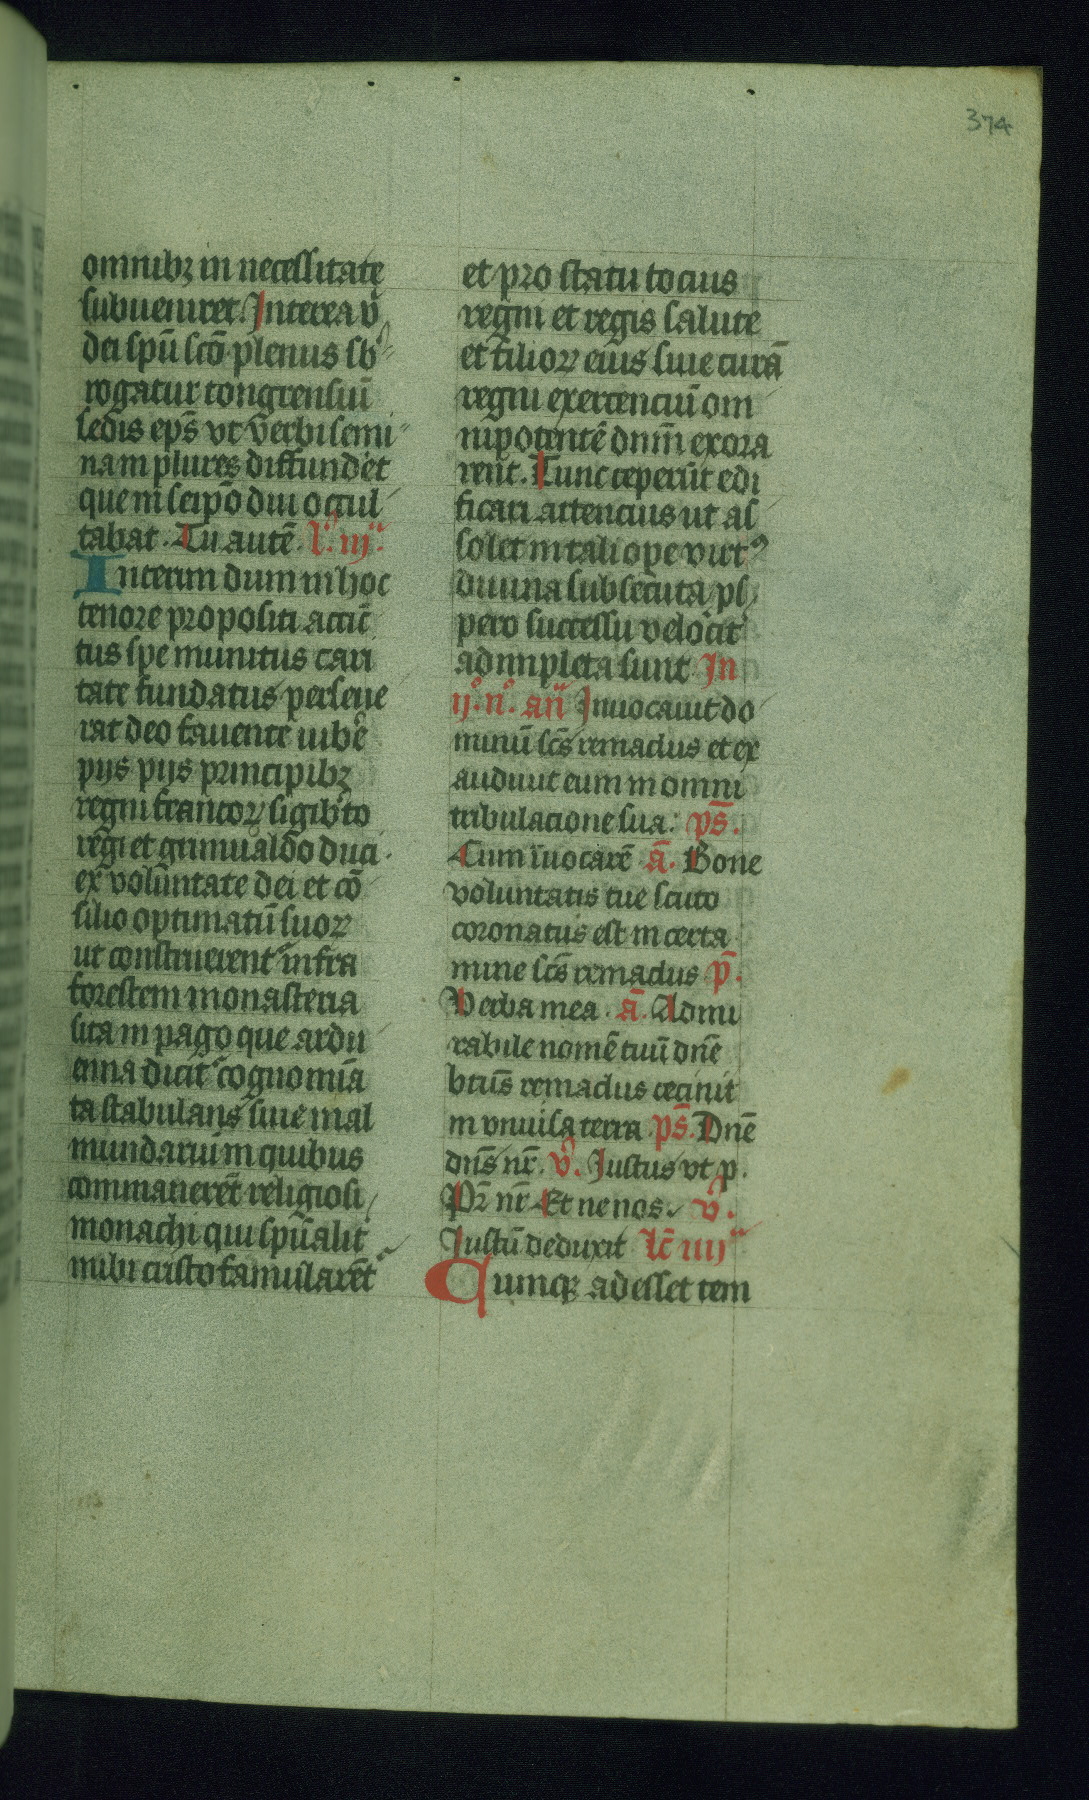 374
omnibꝫ in necessitate
subueniret. Interea v̄
dei spū scō plenus sb
rogatur tongrensiū
sedis ep̄s vt v̄erbi semi
nam plures diffundet
que in seip̄o diu occul
tabat. Tu autē l'. iij
Interim dum in hoc
tenore propositi accīc
tus spe munitus cari
tate fundatus perseue
rat deo fauente iubē
pijs pijs principibꝫ
regni francoꝝ sigib'to
regi et grimualdo duci.
ex voluntate dei et cō
silio optimatū suoꝝ
ut construerent infra
forestem monasteria
sita in pago que ardu
enna dicit᷑ cognomīa
ta stabulans siue mal
mundarium in quibus
commanerēt religiosi
monachi qui spūalit
mibi cristo famularēt
et pro statu tocius
regni et regis salute
et filioꝝ eius siue curā
regni exercenciū om
nipotentē dnm̄ exora
rent. Tunc ceperūt edi
ficari attencius ut as
solet in tali ope virt᷑
diuina subsecuta ps
pero successu velocit
adimpleta sunt In
ij°. n°. añ Inuocauit do
minū scs̄ remaclus et ex
audiuit eum in omni
tribulacione sua: ps̄.
Cum īuocarē ā. Bone
voluntatis tue scuto
coronatus est in certa
mine scs̄ remaclus p̄.
Verba mea. ā. Admi
rabile nomē tuū dn̄e
btūs remaclus cecinit
in vniuersa terra ps̄. Dn̄e
dn̄s nr̄. v̄. Iustus vt p.
Pr̄ nr̄ Et ne nos. v̄.
Iustū deduxit lc̄ iiij
Cumqꝫ adesset tem